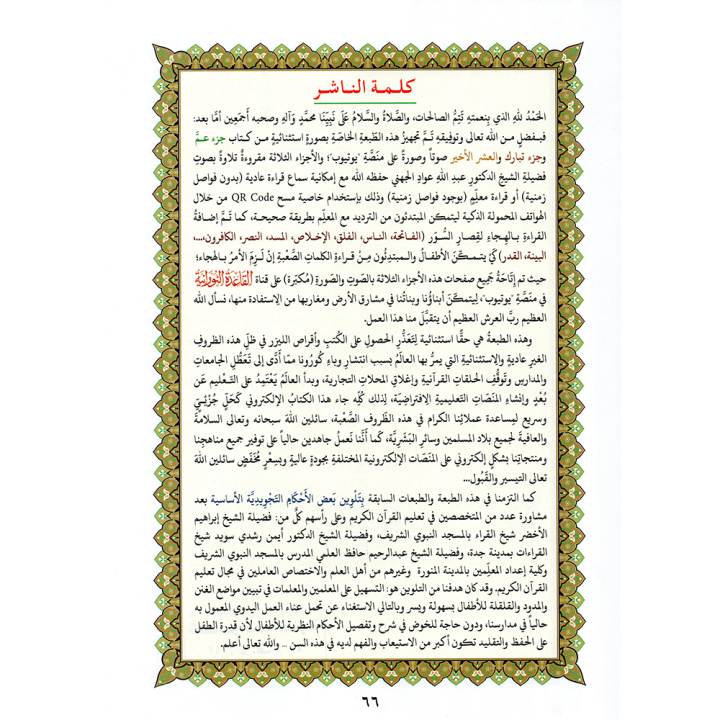 كلمة الناشر
الحَمْدُ للهِ الذي بِنعمتهِ تَتِمُّ الصالحات، والصَّلاةُ والسَّلامُ عَلَى نَبِيِّنَا محمَّدٍ وَآلِهِ وصحبه أَجمَعِين أمَّا بعد:
فبـفضلٍ مـن الله تعالى وتوفيقِهِ تـمَّ تجهيزُ هذه الطَّبعةِ الخاصّةِ بصورةٍ استثنائيةٍ مـن كتاب جزء عـمَّ
وجزء تبارك والعشر الأخير صوتاً وصورةً على منَصَّةِ "يوتيوب"؛ والأجزاء الثلاثة مقروءةٌ تلاوةً بصوتِ
فضيلةِ الشيخِ الدكتورِ عبدِ اللهِ عوادٍ الجهني حفظه الله مع إمكانية سماع قراءة عادية (بدون فواصل
زمنية) أو قراءة معلِّم (بوجود فواصل زمنية) وذلك بإستخدام خاصية مسح QR Code من خلال
الهواتف المحمولة الذكية ليتمكن المبتدئون من الترديد مع المعلِّم بطريقة صحيحة، كما تـمَّ إضافةُ
القراءةِ بالهجاءِ لِقِصارِ السُّـوَر (الفـاتحة، الناس، الفلق، الإخـلاص، المسد، النصر، الكافرون،...،
البينة، القدر) كَيْ يتـمكـنَ الأطفـالُ والمـبتدئُون مِنْ قراءةِ الكلماتِ الصَّعْبةِ إنْ لزِمَ الأمرُ بالهجاء؛
حيث تم إتَاحَةُ جَمِيع صفحات هذه الأجزاء الثلاثة بالصَّوتِ والصّورةِ (مُكبَّرة) على قناة القَاعِدَة النُّورَانِيَّة
في منَصَّةِ "يوتيوب"، لِيتمكّنَ أبناؤُنا وبناتُنا في مشارق الأرض ومغاربها من الاِستفادة منها، نسأل الله
العظيم ربَّ العرش العظيم أن يتقبَّل منا هذا العمل.
وهذه الطبعةُ هي حقًّا استثنائية لِتَعَذُّرِ الحصولِ على الكُتبِ وأقراص الليزر في ظلّ هذه الظروفِ
الغيرِ عاديةٍ والاِستثنائيةِ التي يمرُّ بها العالَمُ بسبب انتشارِ وباءِ كُورُونا ممّا أَدَّى إلى تَعَطُّلِ الجامعاتِ
والمدارسِ وتَوقُّفِ الحلقاتِ القرآنيةِ وإغلاقِ المحلاتِ التجارية، وبدأ العالَمُ يَعْتَمِدُ على التَّعْليمِ عَن
بُعْدٍ وإنشاءِ المنَصّاتِ التَّعليميةِ الاِفتراضِيَّة، لِذلك كُلِّه جاء هذا الكتابُ الإلكتروني كَحَلٍّ جُزْئِيّ
وسريع لِـمساعدة عملائِنا الكرام في هذه الظُروف الصَّعْبة، سائلين اللهَ سبحانه وتعالى السلامةَ
والعافيةَ لجميع بلاد المسلمين وسائرِ البَشَرِيَّة، كَما أَنَّنا نَعملُ جاهدين حالياً على توفير جميع مناهجِنا
ومنتجاتِنا بشكلٍ إلكتروني على المَنَصّات الإلكترونية المختلفةِ بجودةٍ عاليةٍ وبِسِعْرٍ مُخَفّضٍ سائلين اللهَ
تعالى التيسير والقَبُول...
كما التزمنا في هذه الطبعة والطبعات السابقة بِتَلْوِينِ بَعضِ الأَحْكَامِ التَّجْوِيدِيَّةِ الأساسية بعد
مشاورة عدد من المتخصصين في تعليم القرآن الكريم وعلى رأسهم كلٌّ من: فضيلة الشيخ إبراهيم
الأخضر شيخ القراء بالمسجد النبوي الشريف، وفضيلة الشيخ الدكتور أيمن رشدي سويد شيخ
القراءات بمدينة جدة، وفضيلة الشيخ عبدالرحيم حافظ العلمي المدرس بالمسجد النبوي الشريف
وكلية إعداد المعلِّمين بالمدينة المنورة وغيرهم من أهل العلم والاختصاص العاملين في مجال تعليم
القرآن الكريم. وقد كان هدفنا من التلوين هو: التسهيل على المعلمين والمعلمات في تبيين مواضع الغنن
والمدود والقلقلة للأطفال بسهولة ويسر وبالتالي الاستغناء عن تحمل عناء العمل اليدوي المعمول به
حالياً في مدارسنا، ودون حاجة للخوض في شرح وتفصيل الأحكام النظرية للأطفال لأن قدرة الطفل
على الحفظ والتقليد تكون أكبر من الاستيعاب والفهم لديه في هذه السن ... والله تعالى أعلم.
٦٦